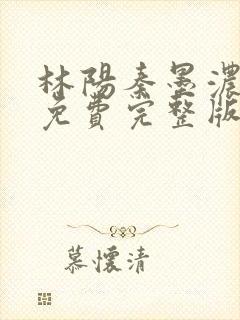 林陽秦墨濃
免費完整版
慕懷清